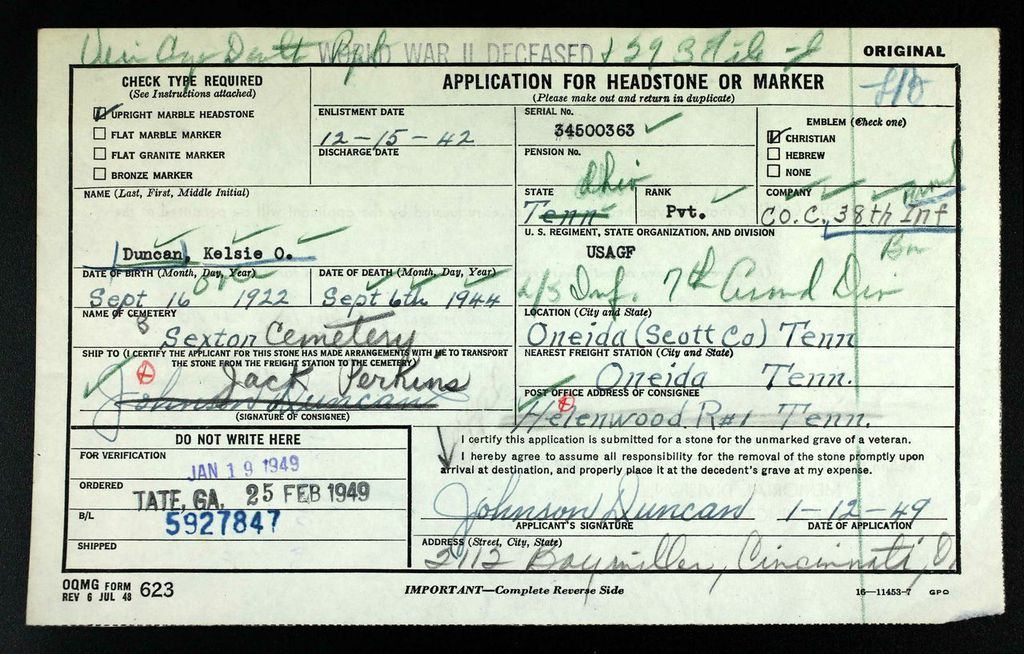 WORLD WAR II DECEASED
ORIGINAL
CHECK TYPE REQUIRED
(See Instructions attached)
UPRIGHT MARBLE HEADSTONE
FLAT MARBLE MARKER
FLAT GRANITE MARKER
BRONZE MARKER
ENLISTMENT DATE
12-15-42
DISCHARGE DATE
APPLICATION FOR HEADSTONE OR MARKER
(Please make out and return in duplicate)
SERIAL No.
34500363
PENSION No.
EMBLEM (Check one)
CHRISTIAN
HEBREW
NONE
NAME (Last, First, Middle Initial)
Duncan, Kelsie O.
STATE
Ohio
Tenn
RANK
Pvt.
COMPANY
CO. C, 38th Inf
Bn
U. S. REGIMENT, STATE ORGANIZATION, AND DIVISION
USAGF
Inf. 7th Armd Div
DATE OF BIRTH (Month, Day, Year)
Sept 16 1922
DATE OF DEATH (Month, Day, Year)
Sept 6th 1944
NAME OF CEMETERY
Sexton Cemetery
LOCATION (City and State)
Oneida (Scott Co) Tenn
SHIP TO (I CERTIFY THE APPLICANT FOR THIS STONE HAS MADE ARRANGEMENTS WITH ME TO TRANSPORT
THE STONE FROM THE FREIGHT STATION TO THE CEMETERY)
Jack Perkins
Johnson Duncan
(SIGNATURE OF CONSIGNEE)
NEAREST FREIGHT STATION (City and State)
Oneida Tenn.
POST OFFICE ADDRESS OF CONSIGNEE
Helenwood R#1 Tenn.
DO NOT WRITE HERE
FOR VERIFICATION
JAN 19 1949
ORDERED
TATE, GA. 25 FEB 1949
B/L
5927847
SHIPPED
I certify this application is submitted for a stone for the unmarked grave of a veteran.
I hereby agree to assume all responsibility for the removal of the stone promptly upon
arrival at destination, and properly place it at the decedent's grave at my expense.
Johnson Duncan 1-12-49
APPLICANT'S SIGNATURE
DATE OF APPLICATION
ADDRESS (Street, City, State)
2112 Baymiller, Cincinnati, O
OQMG FORM 623
REV 6 JUL 48
IMPORTANT—Complete Reverse Side
16—11453-7 GPO